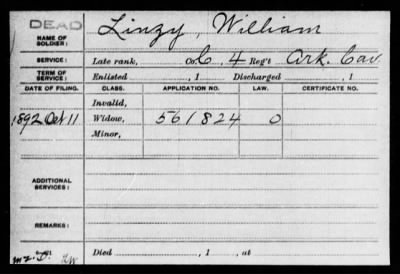 DEAD
NAME OF SOLDIER: Linzy, William
SERVICE: Late rank, Co. C, 4 Reg't Ark. Cav.
TERM OF SERVICE: Enlisted , 1 Discharged , 1
DATE OF FILING. CLASS. APPLICATION NO. LAW. CERTIFICATE NO.
Invalid,
1892 Oct 11 Widow, 561824 O
Minor,
ADDITIONAL SERVICES:
REMARKS:
Died , 1 , at